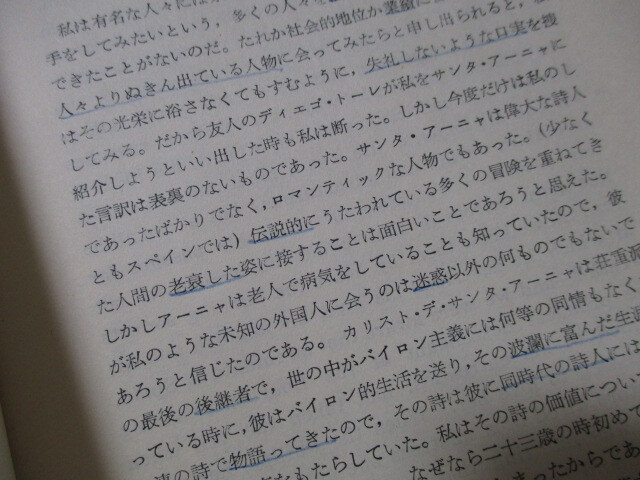 私は有名な人々には
手をしてみたいという，多くの人々を
できたことがないのだ。たれか社会的地位か業績に
人々よりぬきん出ている人物に会ってみたらと申し出られると，
はその光栄に浴さなくてもすむように，失礼しないような口実を捜
してみる。だから友人のディエゴ・トーレが私をサンタ・アーニャに
紹介しようといい出した時も私は断った。しかし今度だけは私のし
た言訳は表裏のないものであった。サンタ・アーニャは偉大な詩人
であったばかりでなく，ロマンティックな人物でもあった。（少なく
ともスペインでは）伝説的にうたわれている多くの冒険を重ねてき
た人間の老衰した姿に接することは面白いことであろうと思えた。
しかしアーニャは老人で病気をしていることも知っていたので，彼
が私のような未知の外国人に会うのは迷惑以外の何ものでもないで
あろうと信じたのである。 カリスト・デ・サンタ・アーニャは荘重派
の最後の後継者で，世の中がバイロン主義には何等の同情もなく
っている時に，彼はバイロン的生活を送り，その波瀾に富んだ生涯
の詩で物語ってきたので，その詩は彼に同時代の詩人には
をもたらしていた。私はその詩の価値につい
なぜなら二十三歳の時初めて
まったからであ